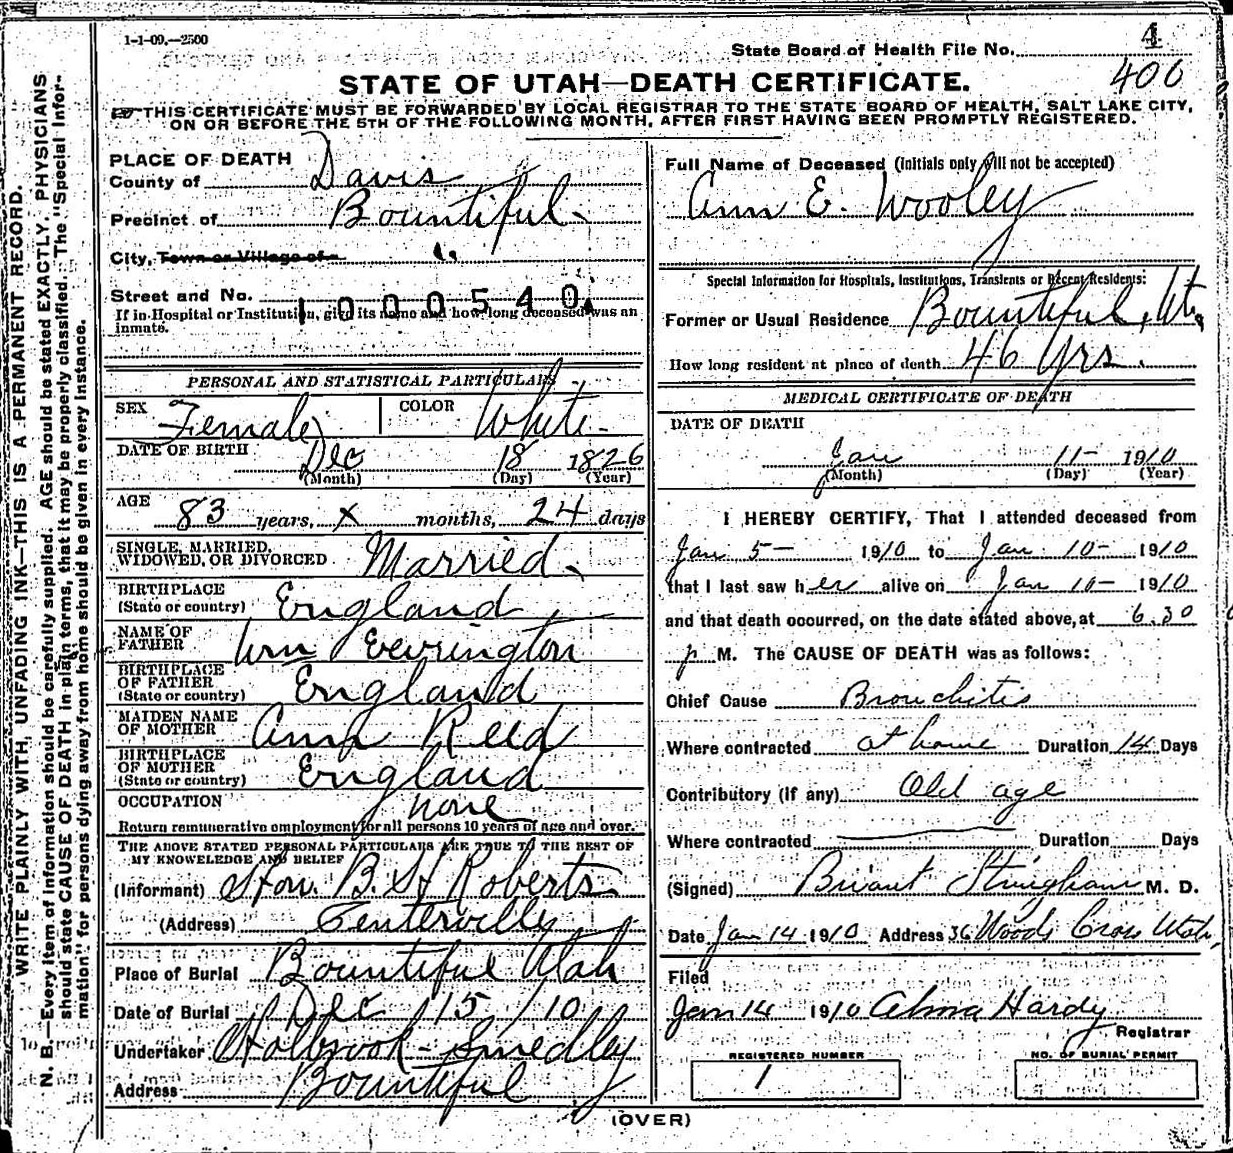 1-1-09.—2500
State Board of Health File No. 4
406
STATE OF UTAH—DEATH CERTIFICATE.
THIS CERTIFICATE MUST BE FORWARDED BY LOCAL REGISTRAR TO THE STATE BOARD OF HEALTH, SALT LAKE CITY,
ON OR BEFORE THE 5TH OF THE FOLLOWING MONTH, AFTER FIRST HAVING BEEN PROMPTLY REGISTERED.
WRITE PLAINLY WITH, UNFADING INK—THIS IS A PERMANENT RECORD.
N. B.—Every item of Information should be carefully supplied. AGE should be stated EXACTLY. PHYSICIANS
should state CAUSE OF DEATH in plain terms, that it may be properly classified. The "Special Infor-
mation" for persons dying away from home should be given in every instance.
PLACE OF DEATH
County of Davis
Precinct of Bountiful
City, Town or Village of
Street and No.
1000540
If in Hospital or Institution, give its name and how long deceased was an
inmate.
PERSONAL AND STATISTICAL PARTICULARS
SEX Female COLOR White
DATE OF BIRTH Dec 18 1826
(Month) (Day) (Year)
AGE 83 years, x months, 24 days
SINGLE, MARRIED,
WIDOWED, OR DIVORCED Married
BIRTHPLACE
(State or country) England
NAME OF
FATHER Wm Everington
BIRTHPLACE
OF FATHER
(State or country) England
MAIDEN NAME
OF MOTHER Ann Reed
BIRTHPLACE
OF MOTHER
(State or country) England
OCCUPATION none
Return remunerative employment for all persons 10 years of age and over.
THE ABOVE STATED PERSONAL PARTICULARS ARE TRUE TO THE BEST OF
MY KNOWELEDGE AND BELIEF
(Informant) Hon. B. H Roberts
(Address) Centerville
Place of Burial Bountiful Utah
Date of Burial Dec 15 /10
Undertaker Holbrook-Smedley
Address Bountiful
Full Name of Deceased (Initials only will not be accepted)
Ann E. Wooley
Special Information for Hospitals, Institutions, Transients or Recent Residents:
Former or Usual Residence Bountiful, Uta
How long resident at place of death 46 yrs.
MEDICAL CERTIFICATE OF DEATH
DATE OF DEATH
Jan 11- 1910
(Month) (Day) (Year)
I HEREBY CERTIFY, That I attended deceased from
Jan 5- 1910 to Jan 10- 1910
that I last saw her alive on Jan 10- 1910
and that death occurred, on the date stated above, at 6.30
p M. The CAUSE OF DEATH was as follows:
Chief Cause Bronchitis
Where contracted at home Duration 14 Days
Contributory (If any) Old age
Where contracted Duration Days
(Signed) Briant Stringham M. D.
Date Jan 14 1910 Address 36 Woods Cross Utah,
Filed
Jan 14 1910 Alma Hardy
Registrar
REGISTERED NUMBER
1
NO. OF BURIAL PERMIT
(OVER)